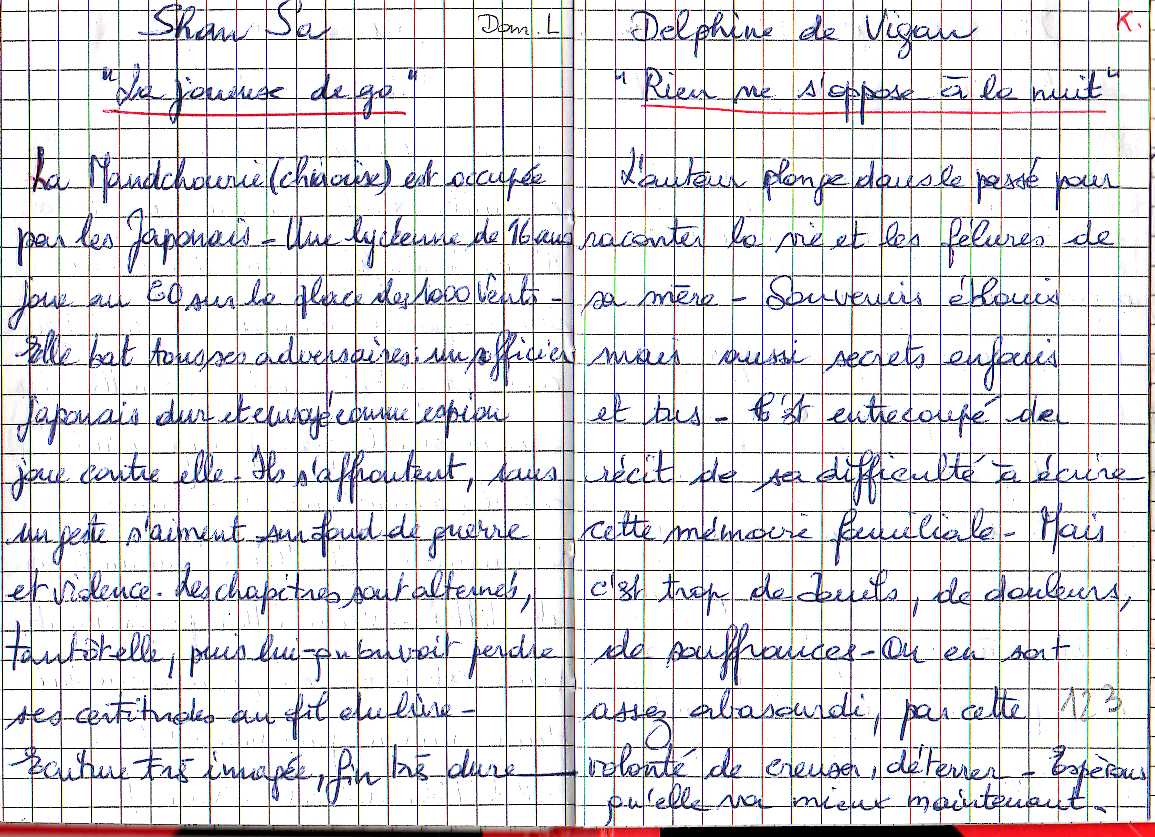 Shan Sa
Dom. L
"La joueuse de go"
La Mandchourie (chinoise) est occupée
par les Japonais - Une lycéenne de 16 ans
joue au GO sur la place des 1000 Vents -
Elle bat tous ses adversaires : un officier
japonais dur et envoyé comme espion
joue contre elle - Ils s'affrontent, sans
un geste s'aiment sur fond de guerre
et violence - Les chapitres sont alternés,
tantôt elle, puis lui - on le voit perdre
ses certitudes au fil du livre -
Ecriture très imagée, fin très dure
Delphine de Vigan
K.
"Rien ne s'oppose à la nuit"
L'auteur plonge dans le passé pour
raconter la vie et les fêlures de
sa mère - Souvenirs éblouis
mais aussi secrets enfouis
et tus - C'est entrecoupé de
récit de sa difficulté à écire
cette mémoire familiale - Mais
c'est trop de deuils, de douleurs,
de souffrances - On en sort
assez abasourdi, par cette
123
volonté de creuser, déterrer - Espérons
qu'elle va mieux maintenant -